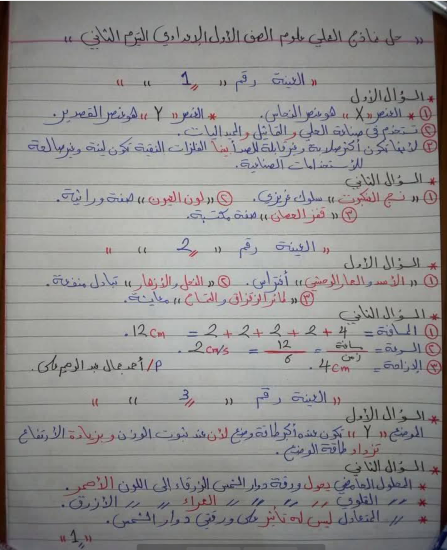 " حل نماذج العملي علوم الصف الأول الإعدادي الترم الثاني "
" العينة رقم " 1 " "
* السؤال الأول
① العنصر " X " هو عنصر النحاس. * العنصر " Y " هو عنصر القصدير.
② تستخدم في صناعة الحلي والتماثيل والميداليات.
③ لأنها تكون أكثر صلابة وغير قابلة للصدأ بينما الفلزات النقية تكون لينة وغير صالحة
للاستخدامات الصناعية.
* السؤال الثاني
① " نسج العنكبوت " سلوك غريزي. ② " لون العيون " صفة وراثية.
③ " قفز الحصان " صفة مكتسبة.
" العينة رقم " 2 " "
* السؤال الأول
① " الأسد والحمار الوحشي " افتراس. ② " النحل والأزهار " تبادل منفعة.
③ " طائر الزقزاق والتمساح " معايشة.
* السؤال الثاني
① المسافة = 4 + 2 + 2 + 2 + 2 = 12 cm.
② السرعة = مسافة / زمن = 12 / 6 = 2 cm/s.
③ الإزاحة = 4 cm. P/ أحمد جمال عبد الرحيم
" العينة رقم " 3 " "
* السؤال الأول
الموضع " Y " تكون عنده أكبر طاقة وضع لأن عند ثبوت الوزن وبزيادة الارتفاع
تزداد طاقة الوضع.
* السؤال الثاني
* المحلول الحامضي يحول ورقة دوار الشمس الزرقاء إلى اللون الأحمر.
* " القلوي " " " " الحمراء " " الأزرق.
* " المتعادل ليس له تأثير على ورقتي دوار الشمس.
" 1 "